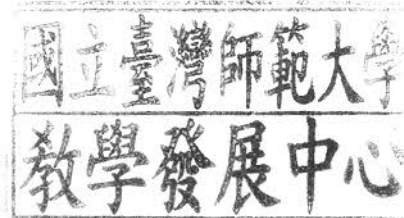 國立臺灣師範大學
教學發展中心